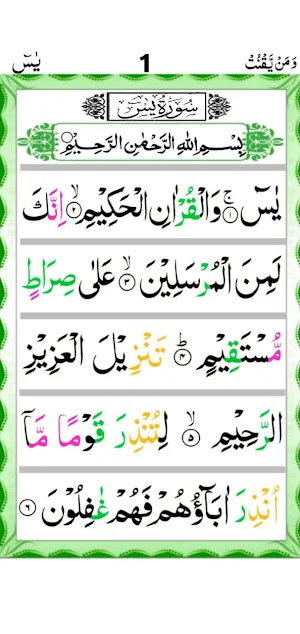 وَمَنۡ يَّقۡنُتۡ 1 يٰسٓ
سُوۡرَةُ يٰسٓ
بِسۡمِ اللّٰهِ الرَّحۡمٰنِ الرَّحِيۡمِ
يٰسٓ ۚ‏﴿۱﴾ وَالۡقُرۡاٰنِ الۡحَكِيۡمِ ۙ‏﴿۲﴾ اِنَّكَ
لَمِنَ الۡمُرۡسَلِيۡنَ ۙ‏﴿۳﴾ عَلٰى صِرَاطٍ
مُّسۡتَقِيۡمٍ ؕ‏﴿۴﴾ تَنۡزِيۡلَ الۡعَزِيۡزِ
الرَّحِيۡمِ ۙ‏﴿۵﴾ لِتُنۡذِرَ قَوۡمًا مَّاۤ
اُنۡذِرَ اٰبَآؤُهُمۡ فَهُمۡ غٰفِلُوۡنَ‏﴿۶﴾